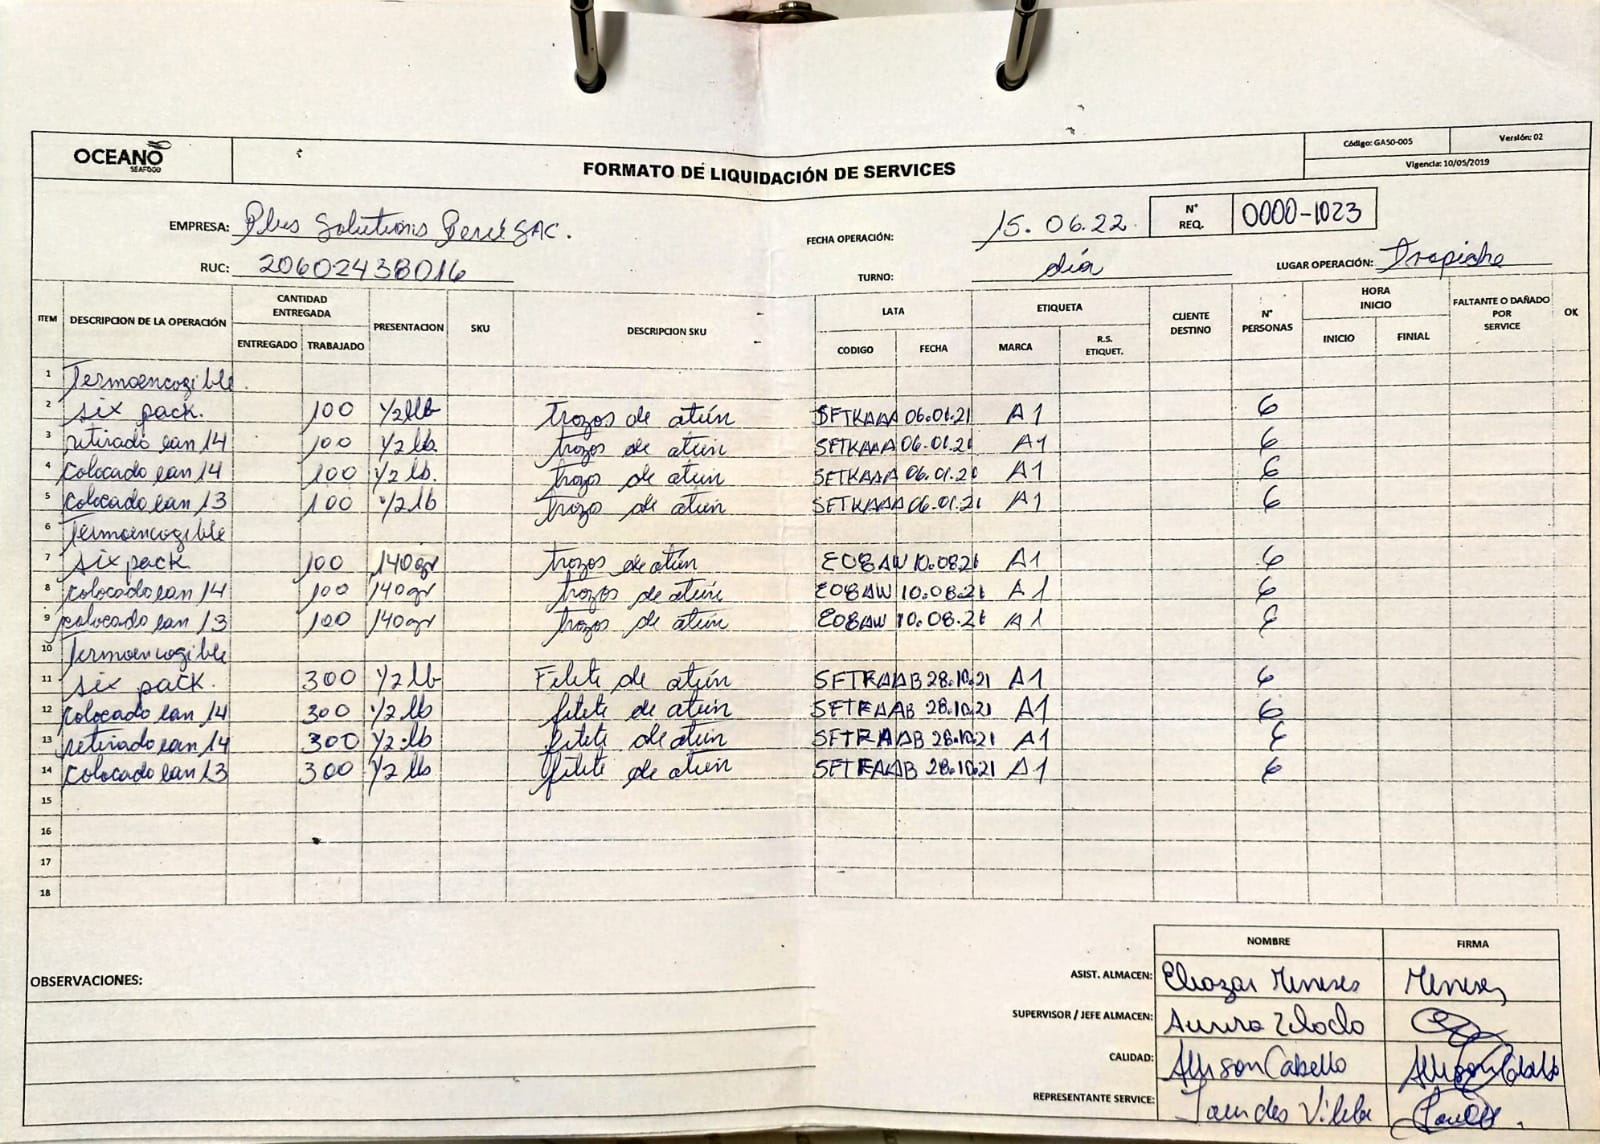 OCEANO
SEAFOOD
FORMATO DE LIQUIDACIÓN DE SERVICES
Código: GA50-005
Versión: 02
Vigencia: 10/05/2019
EMPRESA: Plus Solutions Perú SAC.
FECHA OPERACIÓN: 15.06.22
N° REQ. 0000-1023
RUC: 20602438016
TURNO: día
LUGAR OPERACIÓN: Trapiche
ITEM DESCRIPCION DE LA OPERACIÓN CANTIDAD ENTREGADA PRESENTACION SKU DESCRIPCION SKU LATA ETIQUETA CLIENTE DESTINO N° PERSONAS HORA INICIO FALTANTE O DAÑADO POR SERVICE OK
ENTREGADO TRABAJADO CODIGO FECHA MARCA R.S. ETIQUET. INICIO FINIAL
1 Termoencogible
2 six pack. 100 1/2 lb trozos de atún SFTKAAA 06.01.21 A1 6
3 retirado ean 14 100 1/2 lb trozos de atún SFTKAAA 06.01.21 A1 6
4 colocado ean 14 100 1/2 lb. trozos de atún SFTKAAA 06.01.21 A1 6
5 colocado ean 13 100 1/2 lb trozo de atún SFTKAAA 06.01.21 A1 6
6 Termoencogible
7 six pack 100 140gr trozos de atún EOBAW 10.08.21 A1 6
8 colocado ean 14 100 140gr trozos de atún EOBAW 10.08.21 A1 6
9 colocado ean 13 100 140gr trozos de atún EOBAW 10.08.21 A1 6
10 Termoencogible
11 six pack. 300 1/2 lb Filete de atún SFTRAAB 28.10.21 A1 6
12 colocado ean 14 300 1/2 lb filete de atún SFTRAAB 28.10.21 A1 6
13 retirado ean 14 300 1/2 lb filete de atún SFTRAAB 28.10.21 A1 6
14 colocado ean 13 300 1/2 lb filete de atún SFTRAAB 28.10.21 A1 6
15
16
17
18
NOMBRE FIRMA
OBSERVACIONES:
ASIST. ALMACEN: Eleazar Meneses Meneses
SUPERVISOR / JEFE ALMACEN: Aurora
CALIDAD: Allison Cabello
REPRESENTANTE SERVICE: Lourdes Vilela